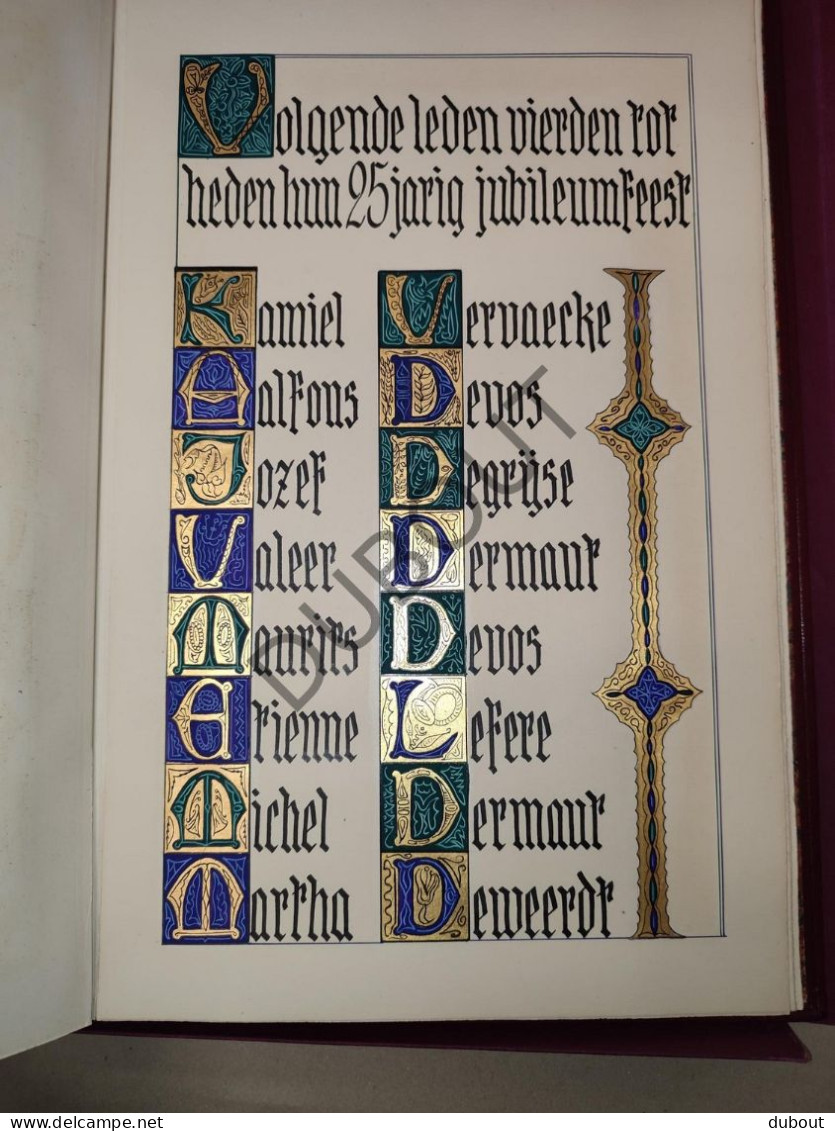 Volgende leden vierden tot
heden hun 25 jarig jubileumfeest
Kamiel Vervaecke
Aalfons Devos
Jozef Degrijse
Valeer Dermaut
Maurits Devos
Etienne Lefere
Michel Dermaut
Martha Deweerdt
DUBOUT
dubout